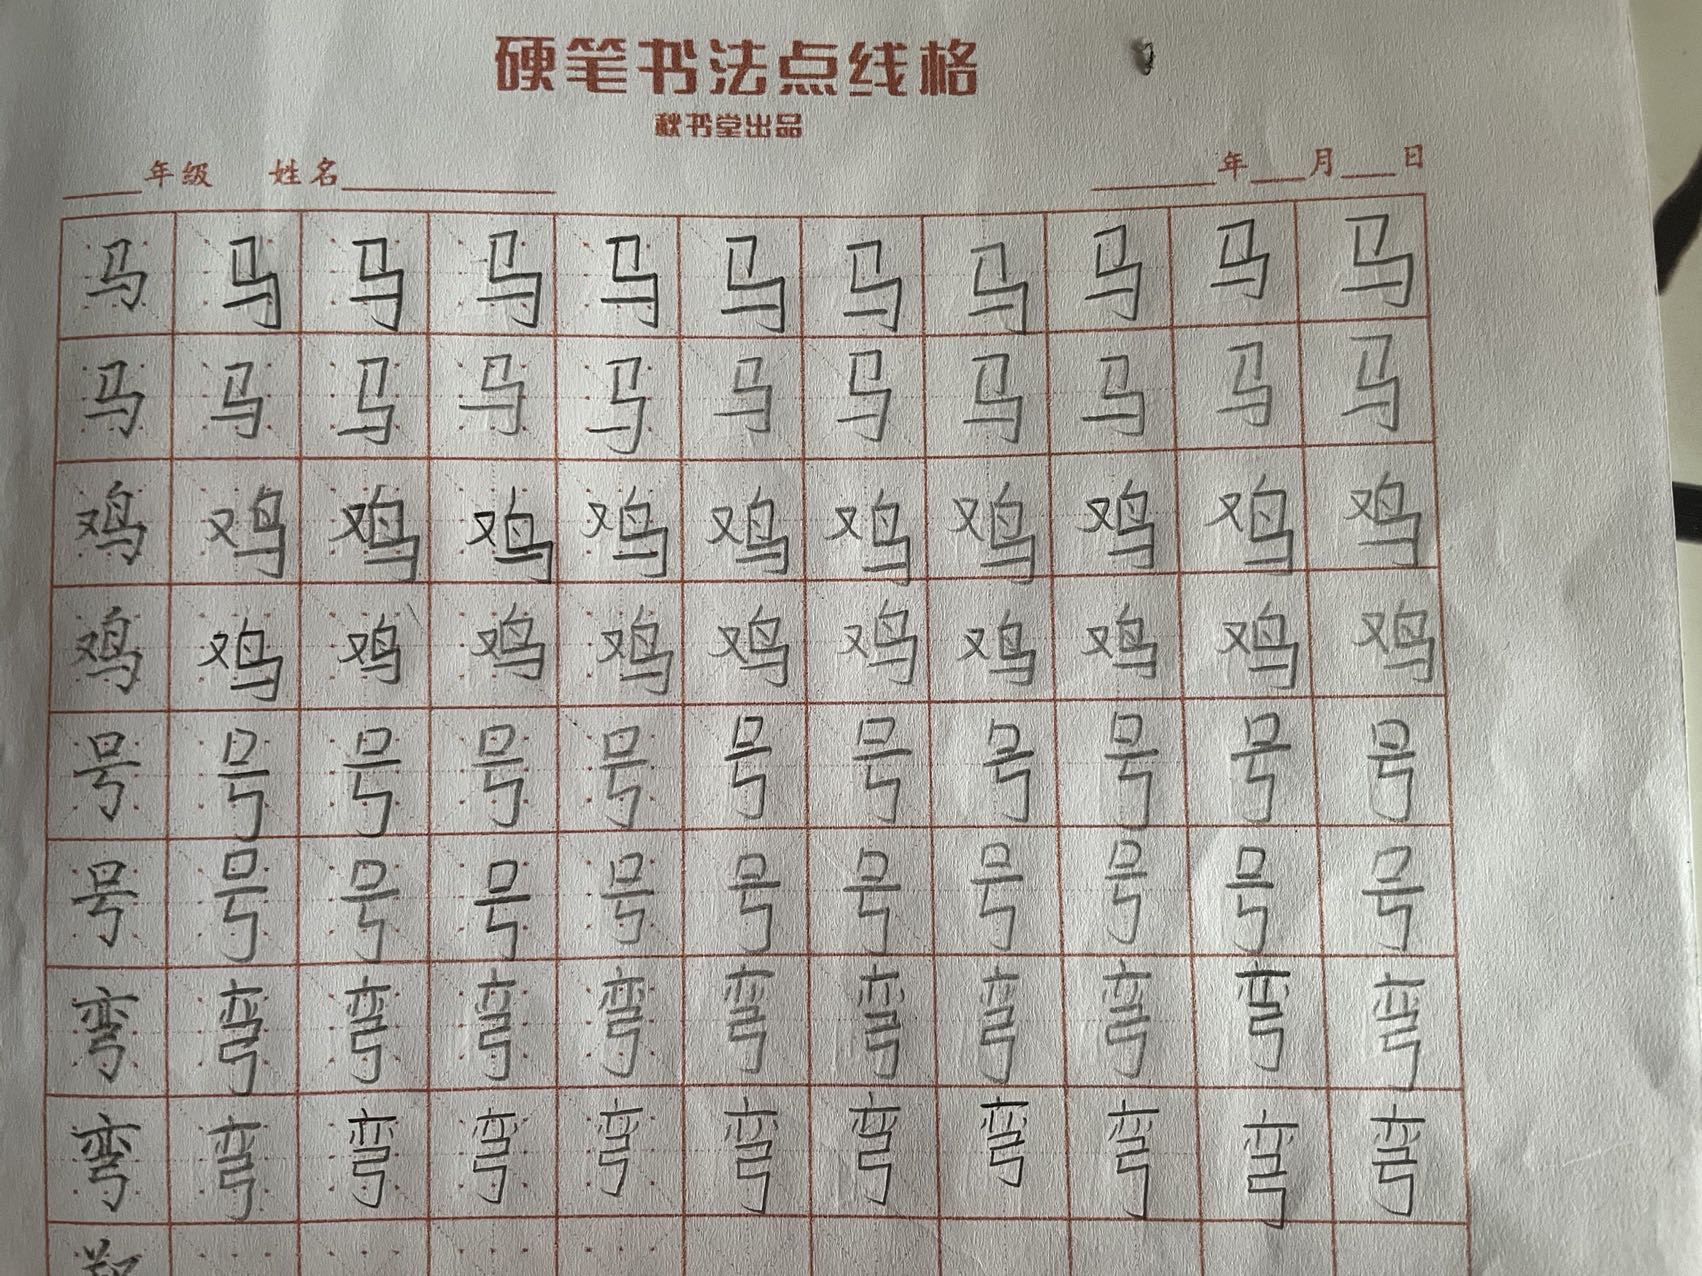 硬笔书法点线格
秋书堂出品
年级 姓名 年 月 日
马 马 马 马 马 马 马 马 马 马 马
马 马 马 马 马 马 马 马 马 马 马
鸡 鸡 鸡 鸡 鸡 鸡 鸡 鸡 鸡 鸡 鸡
鸡 鸡 鸡 鸡 鸡 鸡 鸡 鸡 鸡 鸡 鸡
号 号 号 号 号 号 号 号 号 号 号
号 号 号 号 号 号 号 号 号 号 号
弯 弯 弯 弯 弯 弯 弯 弯 弯 弯 弯
弯 弯 弯 弯 弯 弯 弯 弯 弯 弯 弯